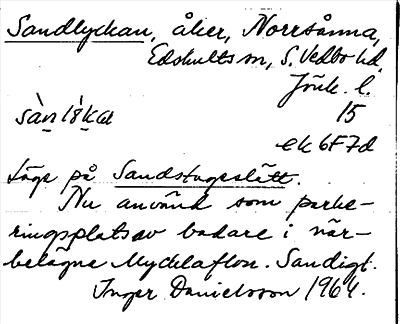 Sandlyckan, åker, Norrsånna,
Edshults sn, S. Vedbo hd
Jönk. l.
15
ek 6F7d
Läge på Sandstugeslätt.
Nu använd som parke-
ringsplats av badare i när-
belägne Mycklaflon. Sandigt.
Inger Danielsson 1964.